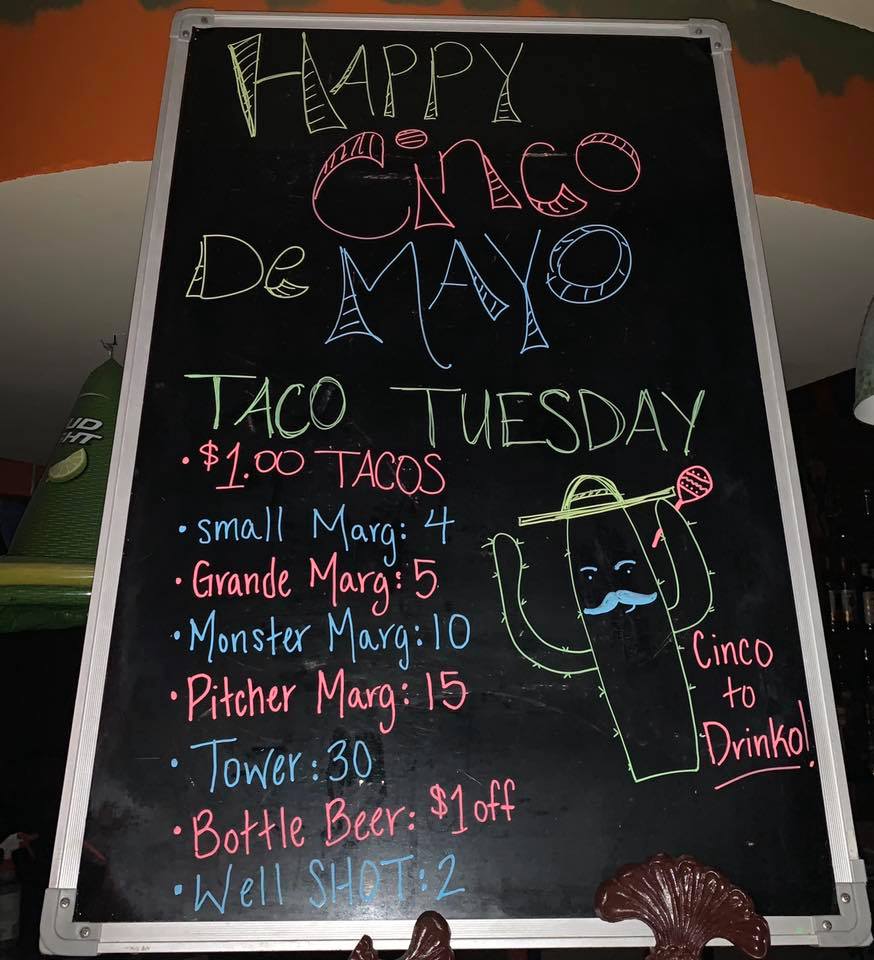 HAPPY
Cinco
De MAYO
TACO TUESDAY
• $1.00 TACOS
• small Marg: 4
• Grande Marg: 5
• Monster Marg: 10
• Pitcher Marg: 15
• Tower: 30
• Bottle Beer: $1 off
• Well SHOT: 2
Cinco
to
Drinko!
UD
GHT